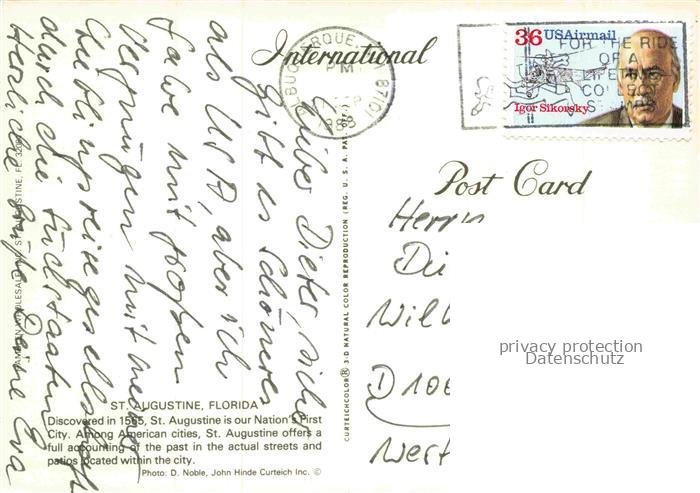 International
Post Card
ALBUQUERQUE, 87101
PM
36 USAirmail
Igor Sikorsky
FOR THE RIDE
OF A
LIFETIME
COLLECT
STAMPS
Lieber Dieter, sicher
gibt es schöneres
als USA, aber ich
fahre mit großem
Vergnügen mit meiner
Lieblingsreisegesellschaft
durch die Südstaaten
Herzliche Grüße Deine Eva
Herrn
Di
Will
D 100
Wert
privacy protection
Datenschutz
ST. AUGUSTINE, FLORIDA
Discovered in 1565, St. Augustine is our Nation's First
City. Among American cities, St. Augustine offers a
full accounting of the past in the actual streets and
patios located within the city.
Photo: D. Noble, John Hinde Curteich Inc. ©
CURTEICHCOLOR® 3-D NATURAL COLOR REPRODUCTION (REG. U. S. A. PA
WHOLESALE ST. AUGUSTINE, FL